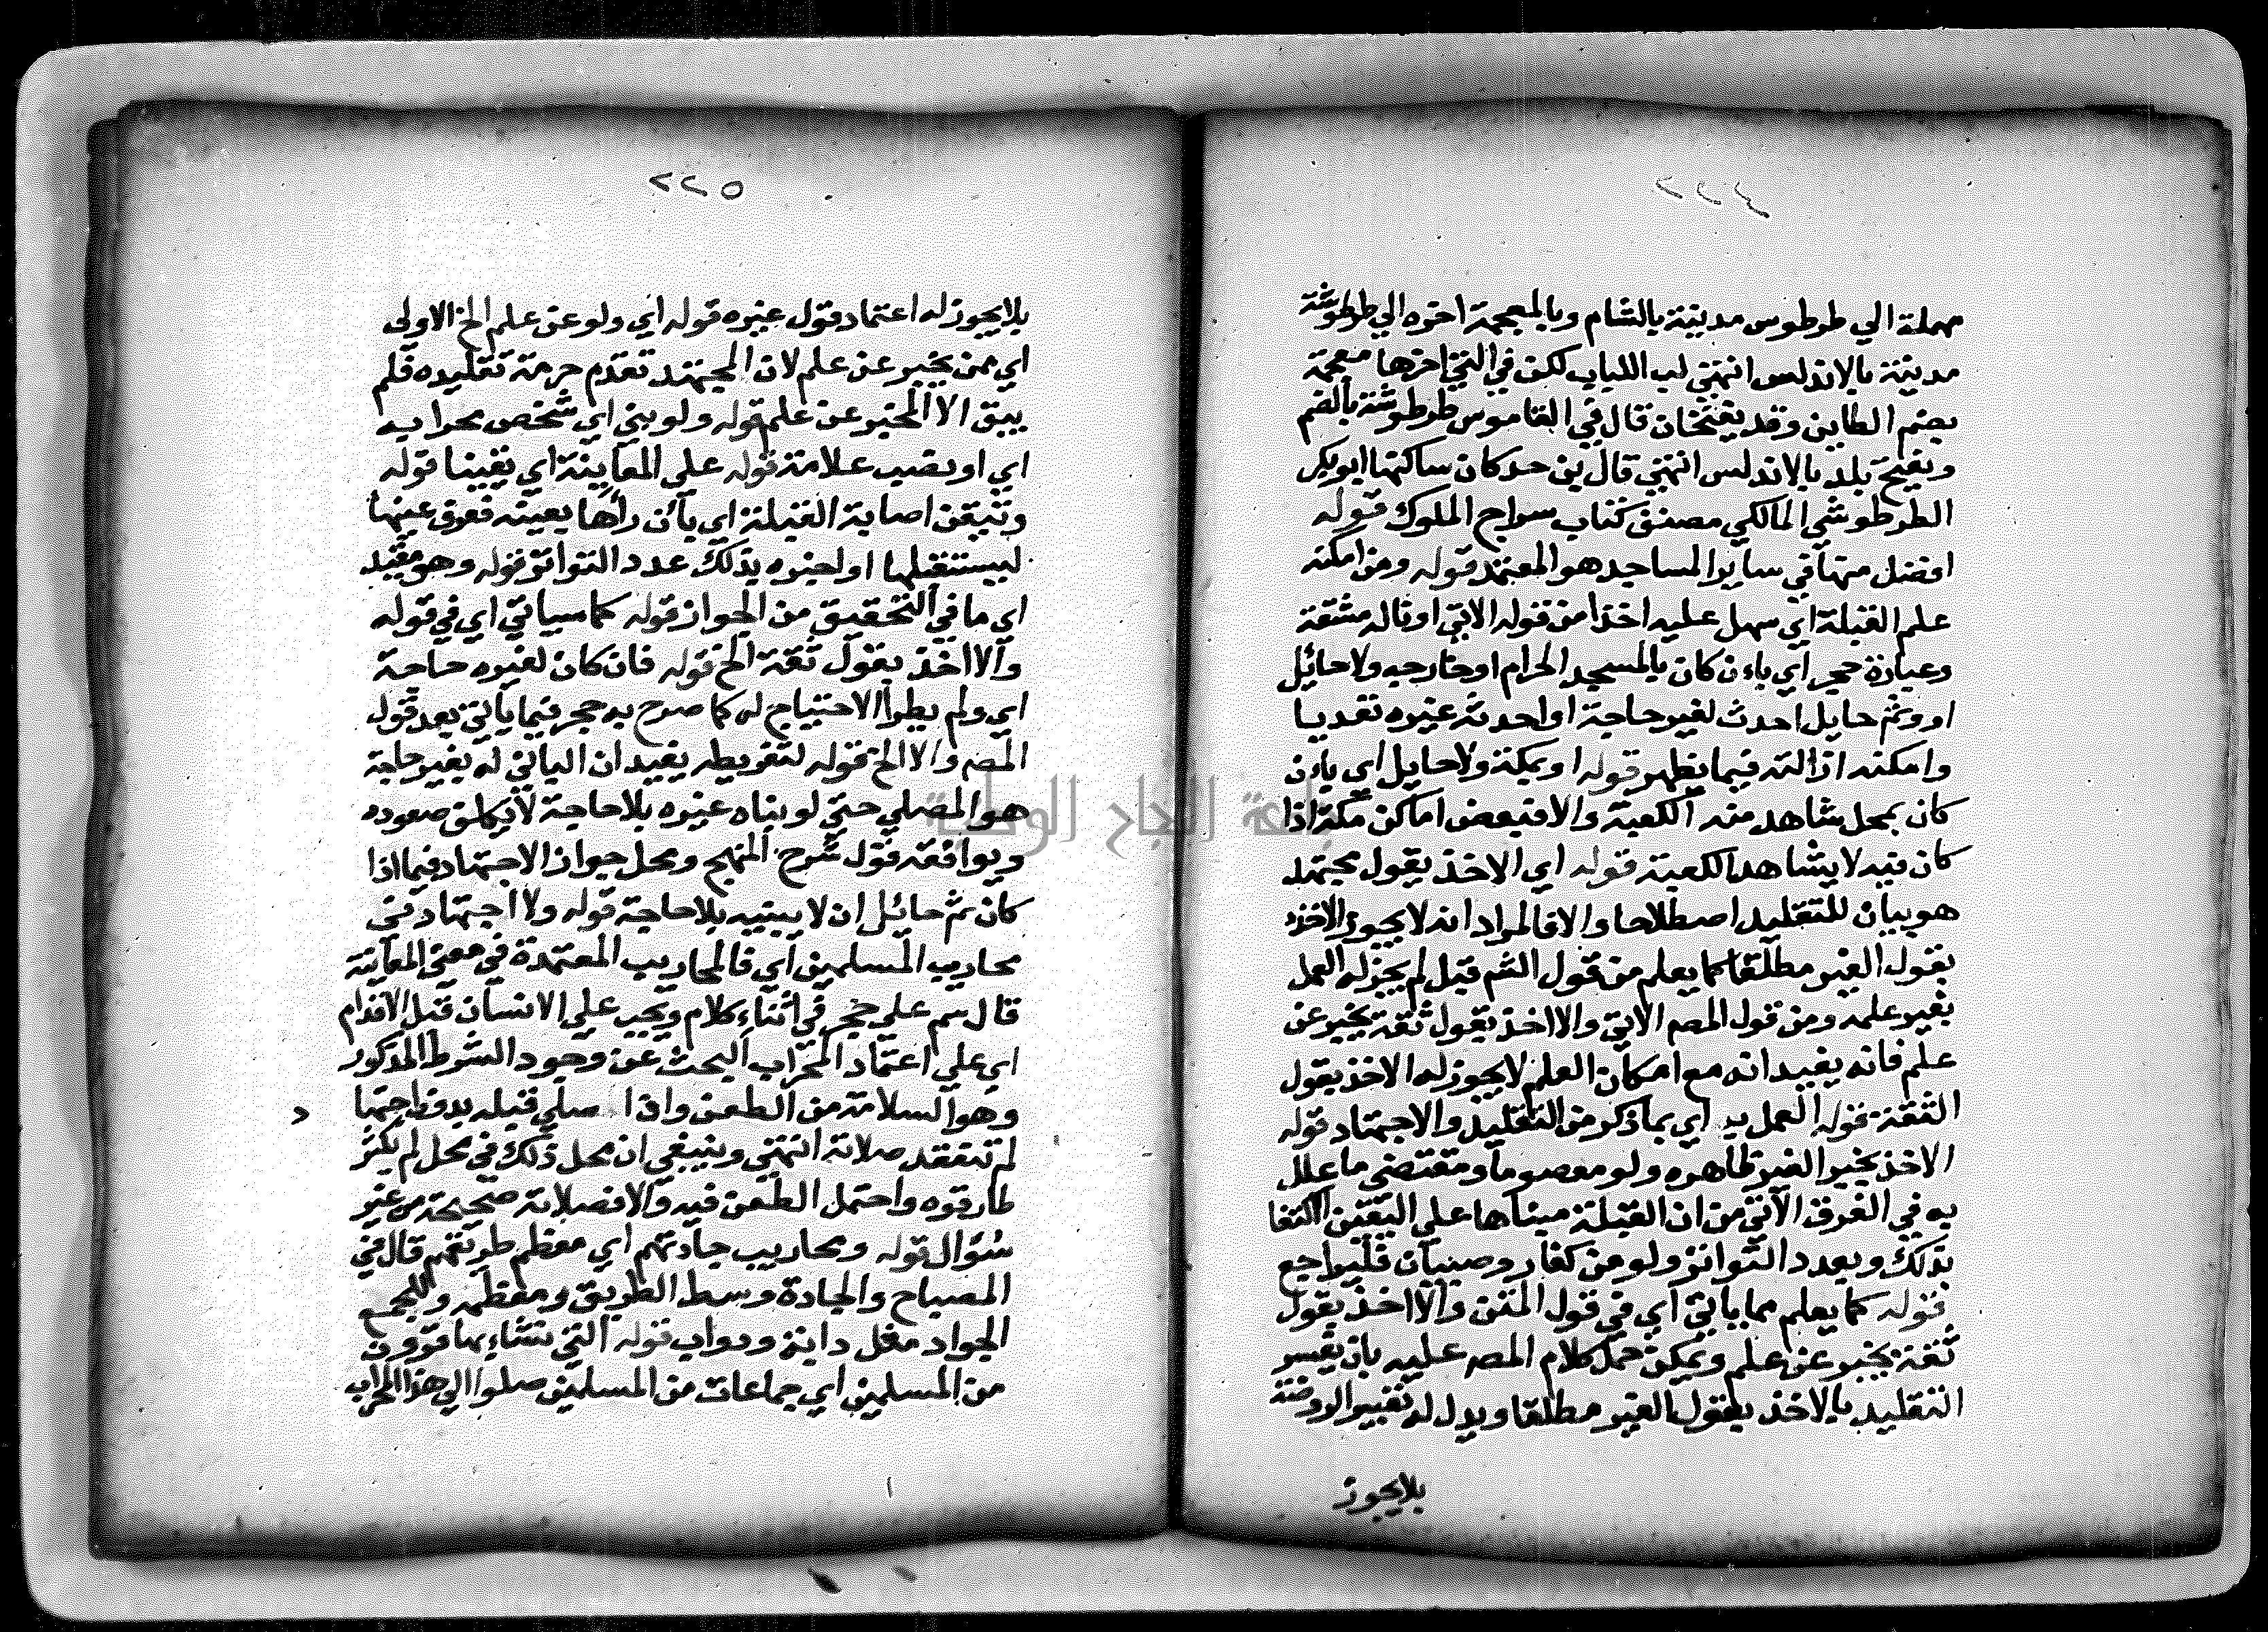 ٢٢٤
مهملة الي طرطوس مدينة بالشام وبالمعجمة اخره الي طرطوشة
مدينة بالاندلس انتهي لب اللباب لكن في التي اخرها معجمة
بضم الطاين وقد يفتحان قال في القاموس طرطوشة بالضم
ويفتح بلد بالاندلس انتهي قال بن حد كان ساكنها ابو بكر
الطرطوشي المالكي مصنف كتاب سراج الملوك قوله
افضل منها في ساير المساجد هو المعتمد قوله ومن امكنه
علم القبلة اي سهل عليه اخذا من قوله الاتي او ناله مشقة
وعبارة حجر اي بان كان بالمسجد الحرام او خارجه ولا حائل
او وثم حايل احدث لغير حاجة او احدثه غيره تعديا
وامكنه ازالته فيما يظهر قوله او بمكة ولا حايل اي بان
كان بمحل شاهد منه الكعبة والا فبعض اماكن مكة اذا
كان فيه لا يشاهد الكعبة قوله اي الاخذ بقول مجتهد
هو بيان للتقليد اصطلاحا والا فالمراد انه لا يجوز الاخذ
بقول الغير مطلقا كما يعلم من قول الشم قبل لم يجز له العمل
بغير علمه ومن قول المصم الاتي والا اخذ بقول ثقة يخبر عن
علم فانه يفيد انه مع امكان العلم لا يجوز له الاخذ بقول
الثقة قوله العمل به اي بما ذكر من التقليد والاجتهاد قوله
الاخذ بخبر الغير ظاهره ولو معصوما ومقتضي ما علل
به في الفرق الاتي من ان القبلة مبناها علي اليقين اكتفا
بذلك وبعدد التواتر ولو من كفار وصبيان فليراجع
قوله كما يعلم مما ياتي اي في قول المتن والا اخذ بقول
ثقة يخبر عن علم ويمكن حمل كلام المصه عليه بان يفسر
التقليد بالاخذ بقول الغير مطلقا ويدل له تعبير الروضة
بلا يجوز
٢٢٥
بلا يجوز له اعتماد قول غيره قوله اي ولو عن علم الخ الاولى
اي ممن يخبر عن علم لان المجتهد تقدم حرمة تقليده فلم
يبق الا المخبر عن علم قوله ولو بني اي شخص محرابه
اي او نصب علامة قوله علي المعاينة اي يقينا قوله
وتيقن اصابة القبلة اي بان راها بعينه فعرف عينها
ليستقبلها او اخبره بذلك عدد التواتر قوله وهو مقيد
اي ما في التحقيق من الجواز قوله كما سياتي اي في قوله
والا اخذ بقول ثقة الخ قوله فان كان لغيره حاجة
اي ولم يطرا الاحتياج له كما صرح به حجر فيما ياتي بعد قول
المصه والا الخ قوله لتفريطه يفيد ان الباني له بغير حاجة
هو المصلي حتي لو بناه غيره بلا حاجة لا يكلف صعوده
ويوافقه قول شرح المنهج ومحل جواز الاجتهاد فيما اذا
كان ثم حائل ان لا يبنيه بلا حاجة قوله ولا اجتهاد في
محاريب المسلمين اي فالمحاريب المعتمدة في معني المعاينة
قال سم علي حجر في اثناء كلام ويجب علي الانسان قبل الاقدام
اي علي اعتماد المحراب البحث عن وجود الشرط المذكور
وهو السلامة من الطعن واذا صلي قبله بدون اجتها
د
لم تنعقد صلاته انتهي وينبغي ان محل ذلك في محل لم يكثر
طارقوه واحتمل الطعن فيه والا فصلاته صحيحة من غير
سؤال قوله ومحاريب جادتهم اي معظم طريقهم قال في
المصباح والجادة وسط الطريق ومعظمه والجمع
الجواد مثل دابة ودواب قوله التي نشاء بها قرون
من المسلمين اي جماعات من المسلمين صلوا الي هذا المحراب